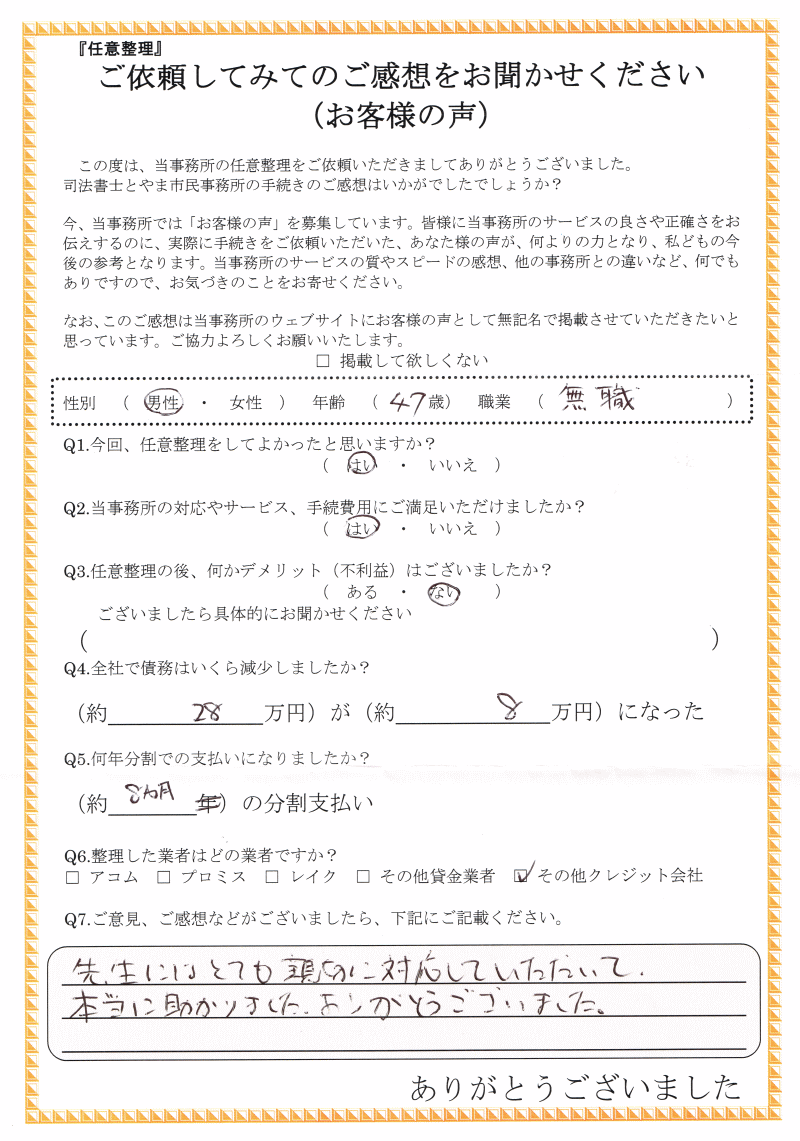 『任意整理』
ご依頼してみてのご感想をお聞かせください
（お客様の声）
この度は、当事務所の任意整理をご依頼いただきましてありがとうございました。
司法書士とやま市民事務所の手続きのご感想はいかがでしたでしょうか？
今、当事務所では「お客様の声」を募集しています。皆様に当事務所のサービスの良さや正確さをお
伝えするのに、実際に手続きをご依頼いただいた、あなた様の声が、何よりの力となり、私どもの今
後の参考となります。当事務所のサービスの質やスピードの感想、他の事務所との違いなど、何でも
ありですので、お気づきのことをお寄せください。
なお、このご感想は当事務所のウェブサイトにお客様の声として無記名で掲載させていただきたいと
思っています。ご協力よろしくお願いいたします。
□ 掲載して欲しくない
性別 （ 男性 ・ 女性 ） 年齢 （ 47 歳） 職業 （ 無職 ）
Q1.今回、任意整理をしてよかったと思いますか？
（ はい ・ いいえ ）
Q2.当事務所の対応やサービス、手続費用にご満足いただけましたか？
（ はい ・ いいえ ）
Q3.任意整理の後、何かデメリット（不利益）はございましたか？
（ ある ・ ない ）
ございましたら具体的にお聞かせください
（ ）
Q4.全社で債務はいくら減少しましたか？
（約 28 万円）が（約 8 万円）になった
Q5.何年分割での支払いになりましたか？
（約 8カ月 年）の分割支払い
Q6.整理した業者はどの業者ですか？
□ アコム □ プロミス □ レイク □ その他貸金業者 ☑ その他クレジット会社
Q7.ご意見、ご感想などがございましたら、下記にご記載ください。
先生にはとても に対応していただいて、
本当に助かりました。ありがとうございました。
ありがとうございました